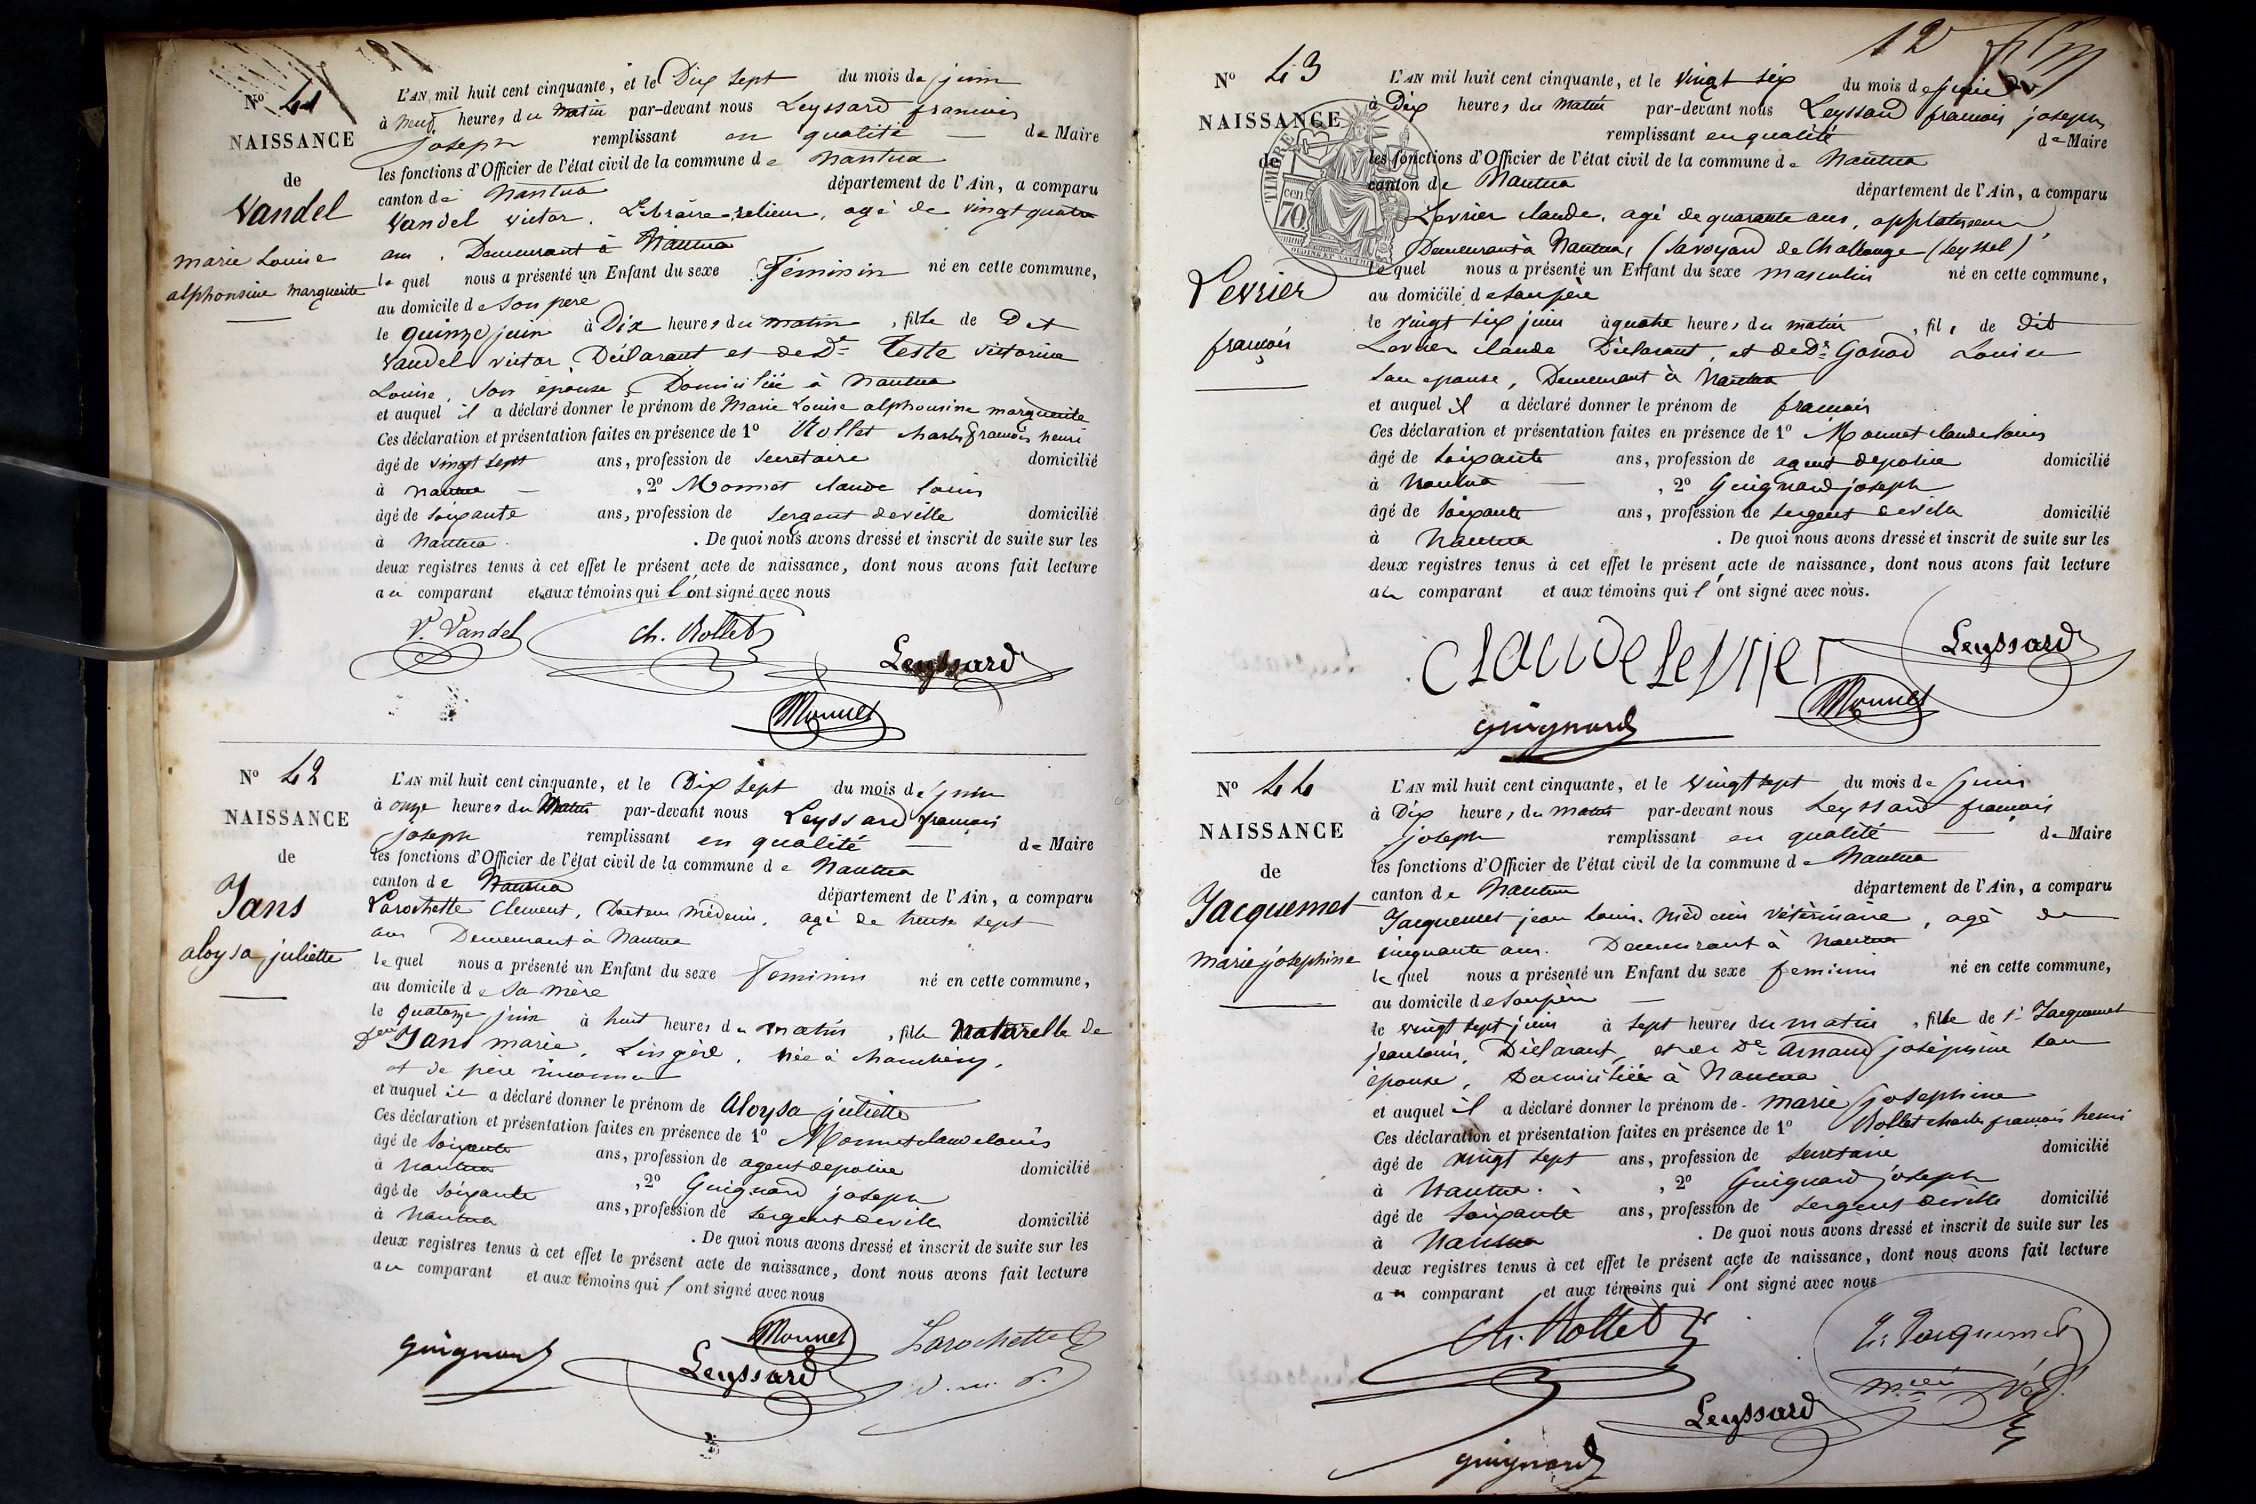 N° 41
NAISSANCE
de
Vandel
marie Louise
alphonsine marguerite
L'AN mil huit cent cinquante, et le Dix sept du mois de juin
à neuf heures du matin par-devant nous Leyssard francois
joseph remplissant en qualité — de Maire
les fonctions d'Officier de l'état civil de la commune de Nantua
canton de Nantua département de l'Ain, a comparu
Vandel victor, Libraire-relieur, agé de vingt quatre
ans, Demeurant à Nantua
lequel nous a présenté un Enfant du sexe féminin né en cette commune,
au domicile de son père
le quinze juin à Dix heures du matin, fille de Dit
Vandel victor, Déclarant et de De Teste victorine
Louise, son épouse, Domiciliée à Nantua
et auquel il a déclaré donner le prénom de Marie Louise alphonsine marguerite
Ces déclaration et présentation faites en présence de 1° Rollet charles francois henri
âgé de vingt sept ans, profession de secretaire domicilié
à nantua — , 2° Monnet claude louis
âgé de soixante ans, profession de sergent de ville domicilié
à Nantua. De quoi nous avons dressé et inscrit de suite sur les
deux registres tenus à cet effet le présent acte de naissance, dont nous avons fait lecture
au comparant et aux témoins qui l'ont signé avec nous
V. Vandel ch. Rollet Leyssard
Monnet
N° 42
NAISSANCE
de
Jans
aloysa juliette
L'AN mil huit cent cinquante, et le Dix sept du mois de juin
à onze heures du Matin par-devant nous Leyssard françois
joseph remplissant en qualité — de Maire
les fonctions d'Officier de l'état civil de la commune de Nantua
canton de Nantua département de l'Ain, a comparu
Larochette Clement, Docteur Médecin, agé de trente sept
ans Demeurant à Nantua
lequel nous a présenté un Enfant du sexe Feminin né en cette commune,
au domicile de sa mère
le quatorze juin à huit heures du matin, fille Naturelle de
Jans marie, Lingère, née à chambéry,
et de père inconnu
et auquel il a déclaré donner le prénom de Aloysa juliette
Ces déclaration et présentation faites en présence de 1° Monnet claude louis
âgé de soixante ans, profession de agent de police domicilié
à Nantua , 2° Guignard joseph
âgé de soixante ans, profession de sergent de ville domicilié
à Nantua . De quoi nous avons dressé et inscrit de suite sur les
deux registres tenus à cet effet le présent acte de naissance, dont nous avons fait lecture
au comparant et aux témoins qui l'ont signé avec nous
Monnet Larochette
guignard Leyssard d. m. p.
12
N° 43
NAISSANCE
de
Levrier
françois
TIMBRE
70 cen
L'AN mil huit cent cinquante, et le vingt six du mois de juin
à Dix heures du matin par-devant nous Leyssard francois joseph
remplissant en qualité de Maire
les fonctions d'Officier de l'état civil de la commune de Nantua
canton de Nantua département de l'Ain, a comparu
Levrier claude, agé de quarante ans,
Demeurant à Nantua, (Savoyard de Challonge (Seyssel)
lequel nous a présenté un Enfant du sexe masculin né en cette commune,
au domicile de son père
le vingt six juin à quatre heures du matin, fils de dit
Levrier claude Déclarant, et de De Gonod Louise
son epouse, Demeurant à Nantua
et auquel il a déclaré donner le prénom de francois
Ces déclaration et présentation faites en présence de 1° Monnet claude louis
âgé de soixante ans, profession de agent de police domicilié
à Nantua — , 2° Guignard joseph
âgé de soixante ans, profession de sergent de ville domicilié
à Nantua . De quoi nous avons dressé et inscrit de suite sur les
deux registres tenus à cet effet le présent acte de naissance, dont nous avons fait lecture
au comparant et aux témoins qui l'ont signé avec nous.
Claude levrier Leyssard
guignard Monnet
N° 44
NAISSANCE
de
Jacquemet
marie josephine
L'AN mil huit cent cinquante, et le vingt sept du mois de juin
à Dix heures du matin par-devant nous Leyssard françois
joseph remplissant en qualité — de Maire
les fonctions d'Officier de l'état civil de la commune de Nantua
canton de Nantua département de l'Ain, a comparu
Jacquemet jean louis, Médecin vétérinaire, agé de
cinquante ans. Demeurant à Nantua
lequel nous a présenté un Enfant du sexe feminin né en cette commune,
au domicile de son père —
le vingt sept juin à sept heures du matin, fille de Sr Jacquemet
jean louis, Déclarant, et de De Arnaud joséphine son
épouse, Domiciliée à Nantua
et auquel il a déclaré donner le prénom de marie josephine
Ces déclaration et présentation faites en présence de 1° Rollet charles francois henri
âgé de vingt sept ans, profession de secretaire domicilié
à Nantua. , 2° Guignard joseph
âgé de soixante ans, profession de sergent de ville domicilié
à Nantua . De quoi nous avons dressé et inscrit de suite sur les
deux registres tenus à cet effet le présent acte de naissance, dont nous avons fait lecture
au comparant et aux témoins qui l'ont signé avec nous
Ch. Rollet Jacquemet
Leyssard
guignard